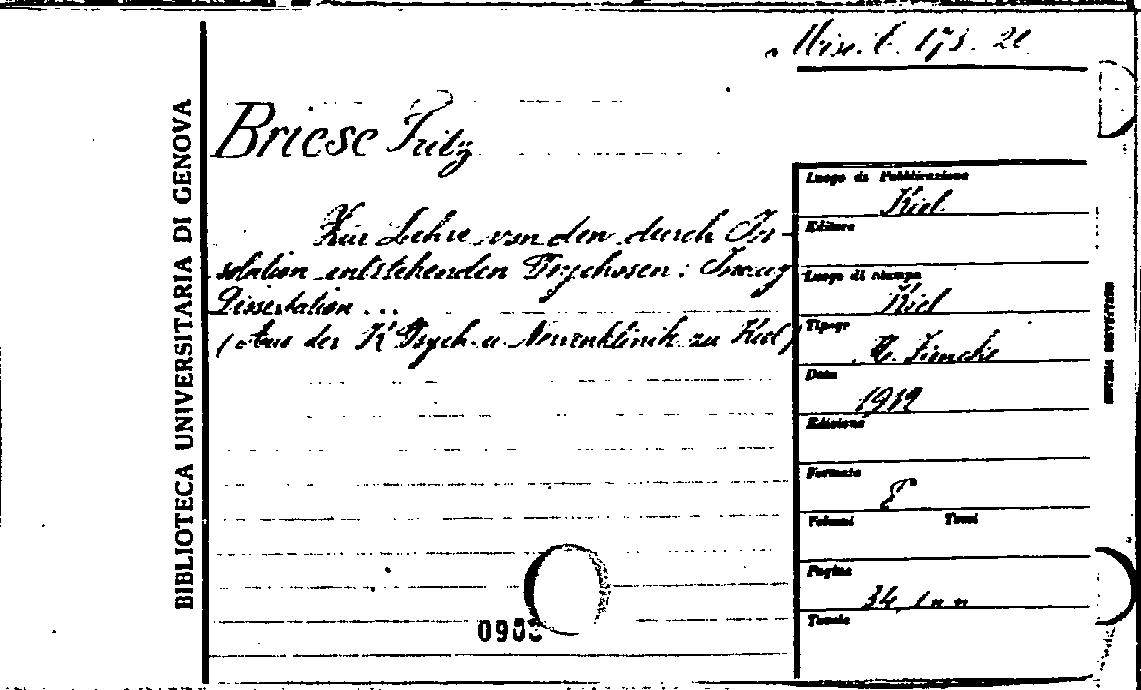 Misc. C. 173. 21
BIBLIOTECA UNIVERSITARIA DI GENOVA
Briese Fritz
Zur Lehre von den durch In-
solation entstehenden Psychosen: Inaug
Dissertation ...
(Aus der K Psych. u. Nervenklinik zu Kiel)
Luogo di Pubblicazione
Kiel
Editore
Luogo di stampa
Kiel
Tipogr
Data
Edizione
Formato
Volumi Tomi
Pagine
34, 1 n n
Tavole